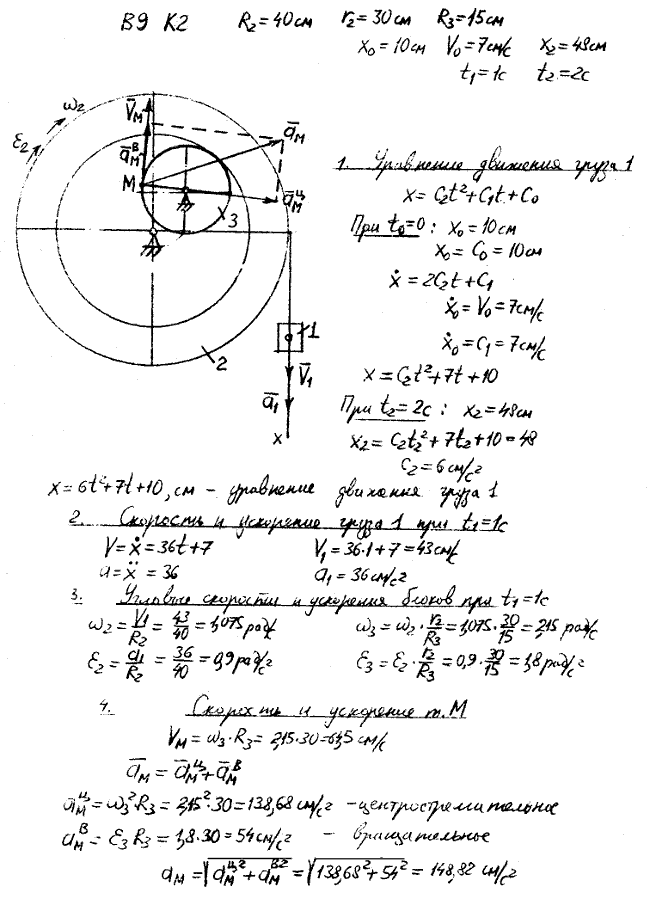 В9 К2 R₂=40см r₂=30см R₃=15см
x₀=10см V₀=7см/с x₂=48см
t₁=1с t₂=2с
ω₂
ε₂
V̄м
ā_М^В
āм
М
ā_М^Ц
3
1
2
V̄₁
ā₁
x
1. Уравнение движения груза 1
x=C₂t²+C₁t+C₀
При t₀=0: x₀=10см
x₀=C₀=10см
ẋ=2C₂t+C₁
ẋ₀=V₀=7см/с
ẋ₀=C₁=7см/с
x=C₂t²+7t+10
При t₂=2с: x₂=48см
x₂=C₂t₂²+7t₂+10=48
C₂=6см/с²
x=6t²+7t+10, см – уравнение движения груза 1
2. Скорость и ускорение груза 1 при t₁=1с
V=ẋ=36t+7 V₁=36·1+7=43см/с
a=ẍ=36 a₁=36см/с²
3. Угловые скорости и ускорения блоков при t₁=1с
ω₂=V₁/R₂=43/40=1,075рад/с ω₃=ω₂·r₂/R₃=1,075·30/15=2,15 рад/с
ε₂=a₁/R₂=36/40=0,9рад/с² ε₃=ε₂·r₂/R₃=0,9·30/15=1,8рад/с²
4. Скорость и ускорение т.М
Vм=ω₃·R₃=2,15·30=64,5 см/с
āм=ā_М^Ц+ā_М^В
a_М^Ц=ω₃²·R₃=2,15²·30=138,68см/с² – центростремительное
a_М^В=ε₃R₃=1,8·30=54см/с² – вращательное
aм=√(a_М^Ц²+a_М^В²)=√(138,68²+54²)=148,82 см/с²